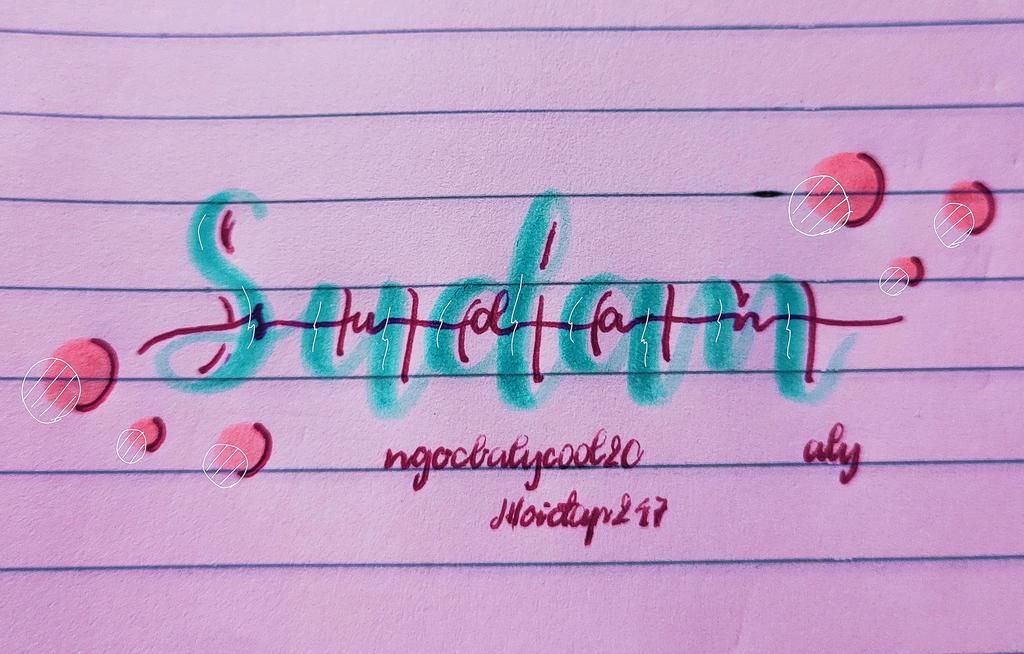 Sudan
sudan
ngocbalycool20
aly
Hoidap247